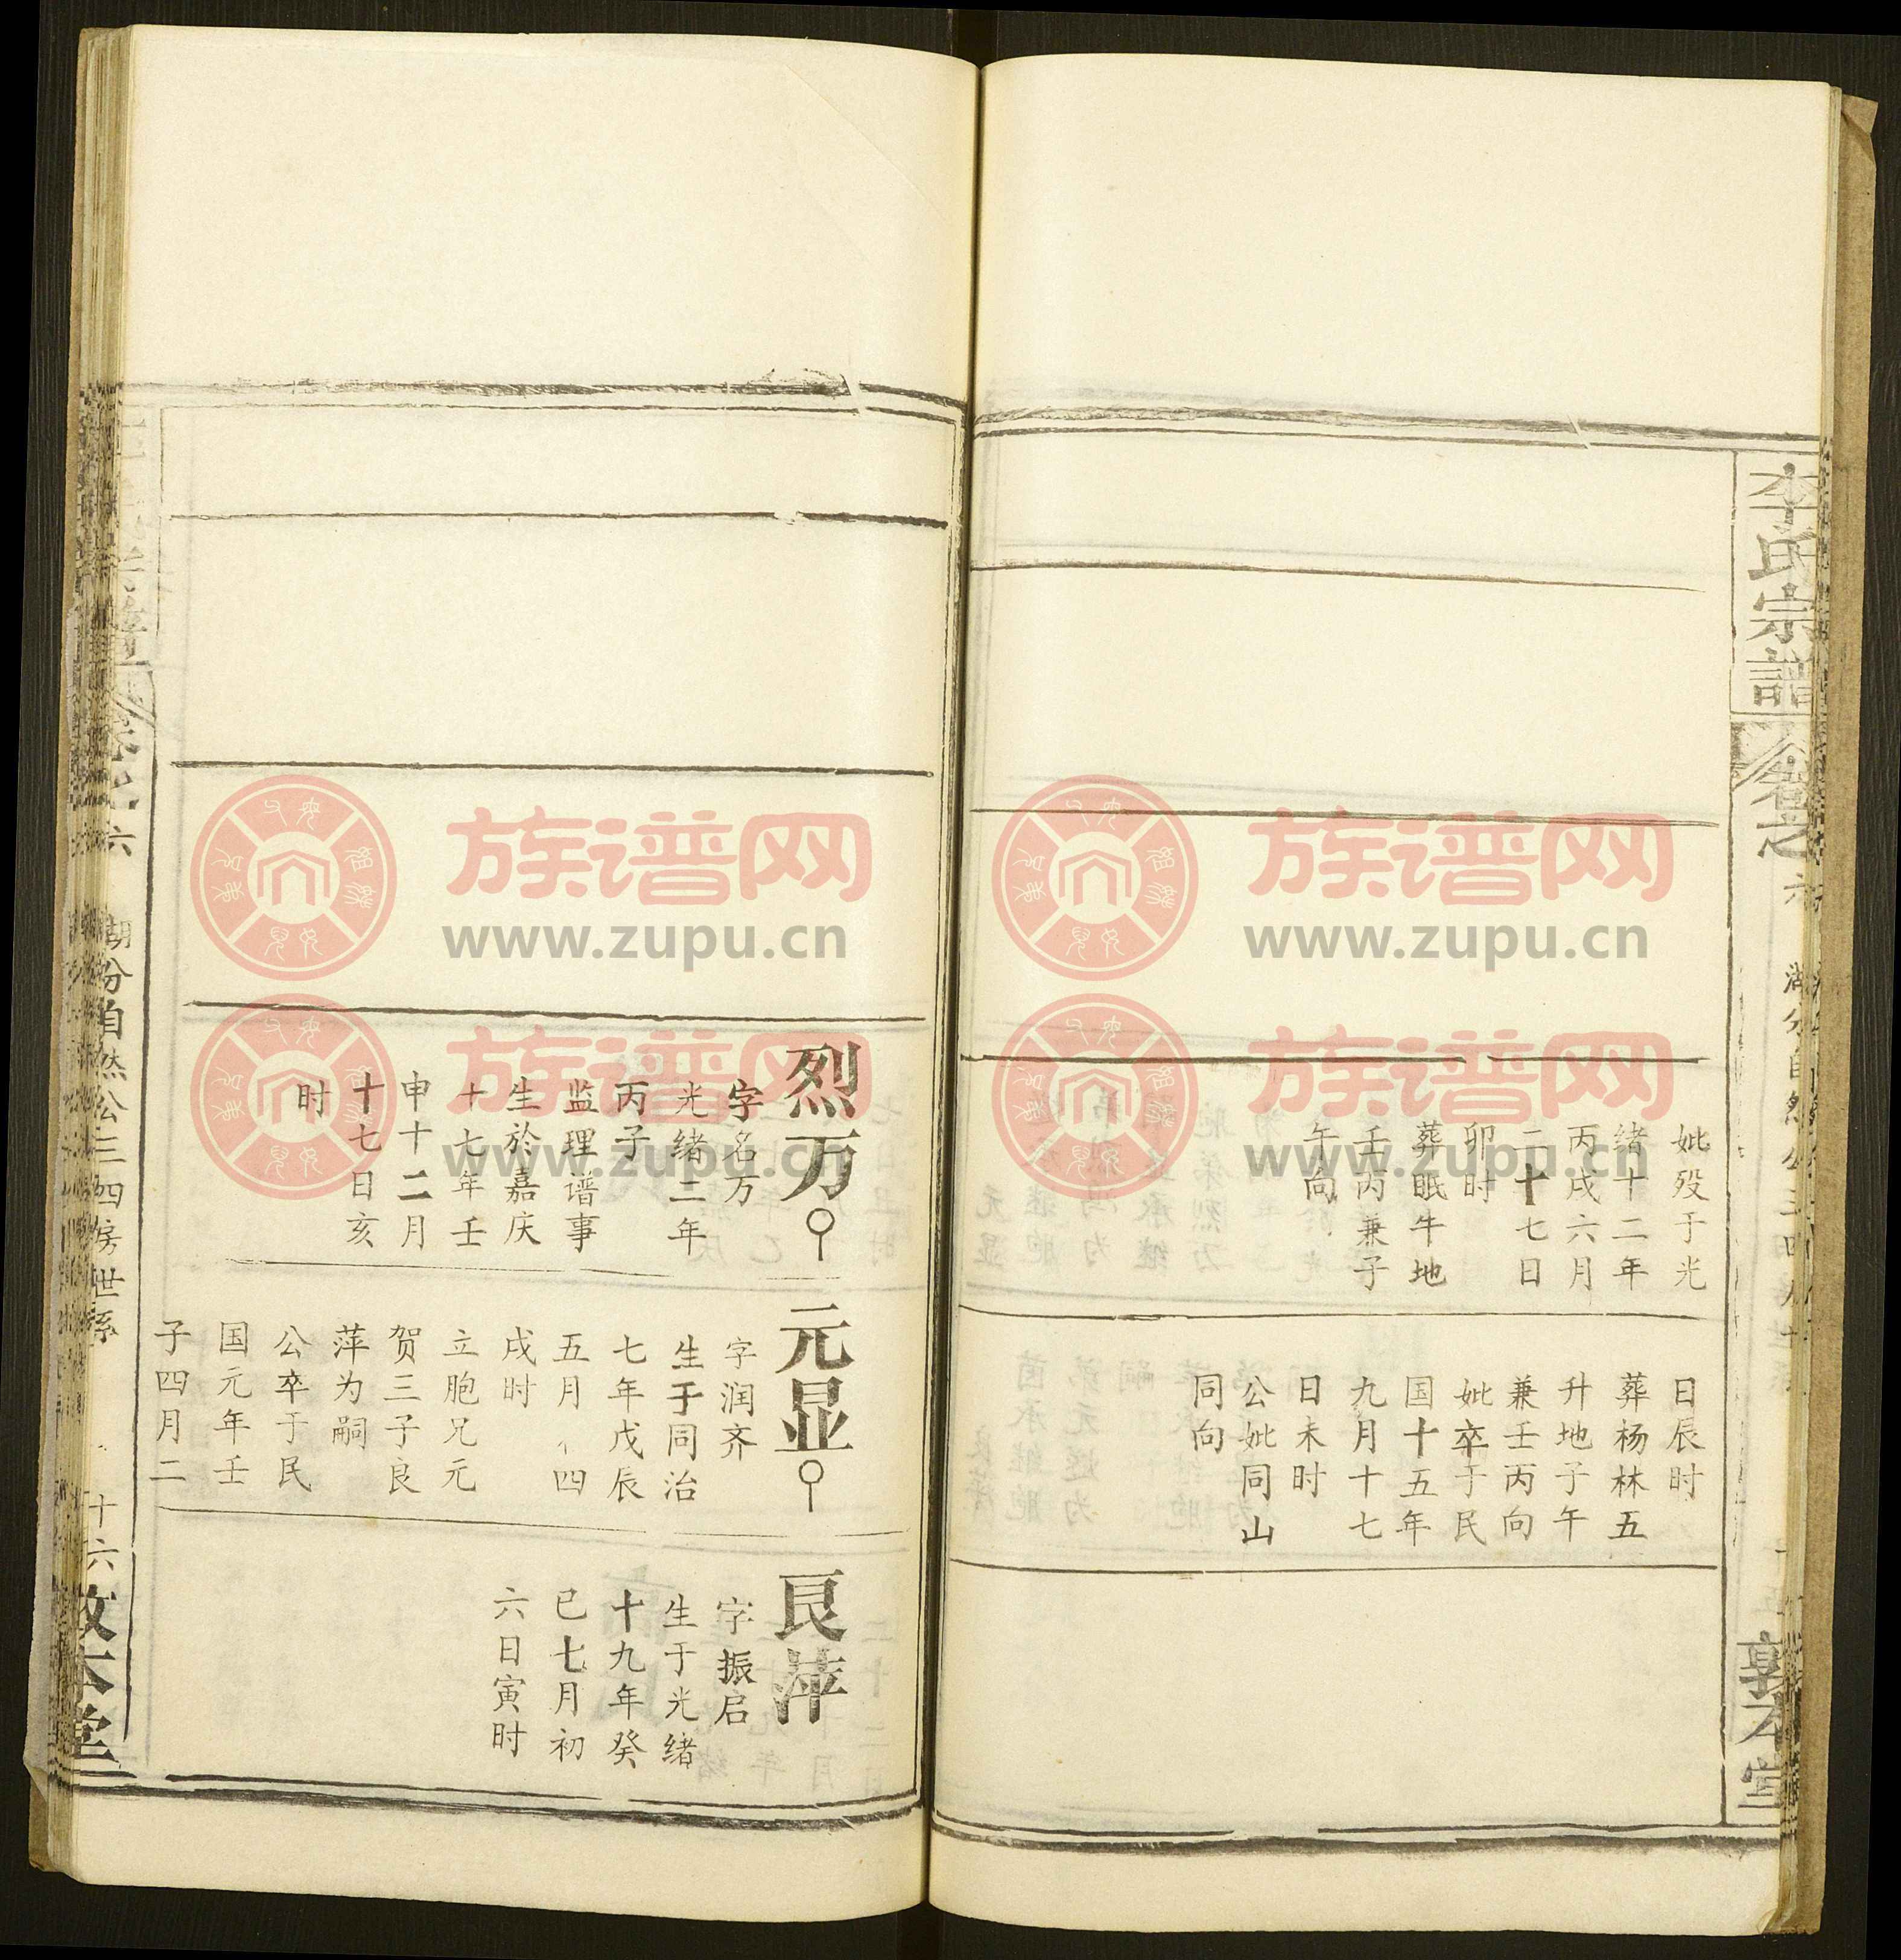 李氏宗譜
卷之六
湖分自然公三四房世系
敦本堂
妣殁于光
绪十二年
丙戌六月
二十七日
卯时
葬眠牛地
壬丙兼子
午向
日辰时
葬杨林五
升地子午
兼壬丙向
妣卒于民
国十五年
九月十七
日未时
公妣同山
同向
烈万
字名万
光绪二年
丙子
监理谱事
生於嘉庆
十七年壬
申十二月
十七日亥
时
元显
字润齐
生于同治
七年戊辰
五月 四
戌时
立胞兄元
贺三子良
萍为嗣
公卒于民
国元年壬
子四月二
良萍
字振启
生于光绪
十九年癸
已七月初
六日寅时
六
湖分自然公三四房世系
十六
敦本堂
族谱网
www.zupu.cn
族谱网
www.zupu.cn
族谱网
www.zupu.cn
族谱网
www.zupu.cn